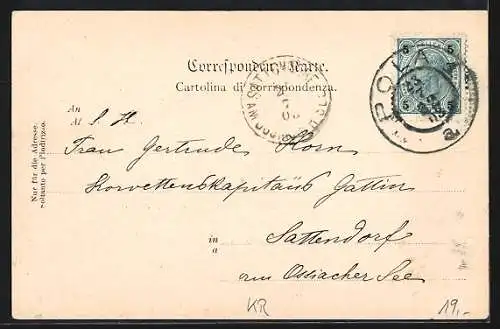 Correspondenz-Karte.
Cartolina di corrispondenza.
An
Al
S. H.
Frau Gertrude Horn
Korvettenskapitäns Gattin
in
a
Sattendorf
am Ossiacher See
Nur für die Adresse.
Soltanto per l'indirizzo.
5 5
POLA
a
KR
19,-